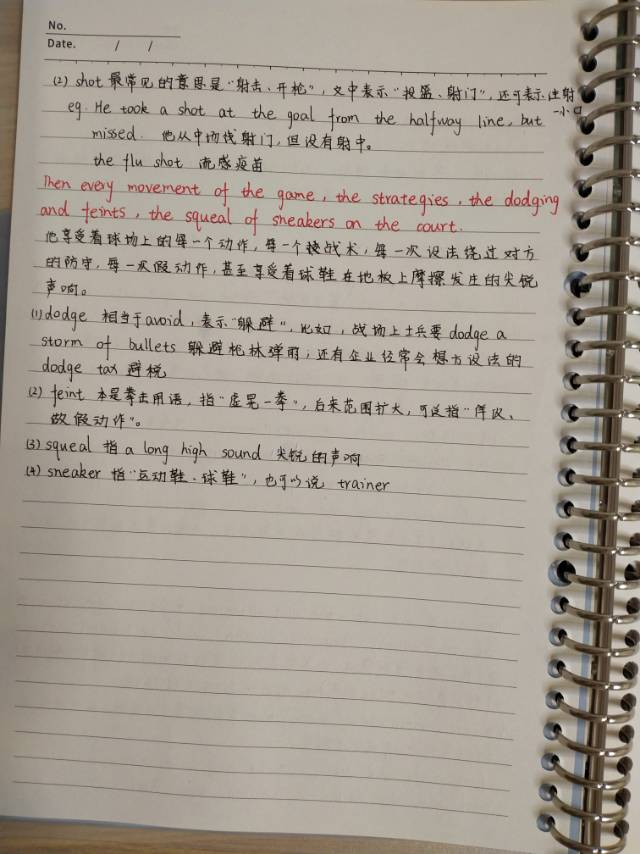 No.
Date. / /
(2) shot 最常见的意思是"射击、开枪",文中表示"投篮、射门",还可表示注射
一小口
eg. He took a shot at the goal from the halfway line, but
missed. 他从中场线射门,但没有射中。
the flu shot 流感疫苗
Then every movement of the game, the strategies, the dodging
and feints, the squeal of sneakers on the court.
他享受着球场上的每一个动作,每一个战术,每一次设法绕过对方
的防守,每一次假动作,甚至享受着球鞋在地板上摩擦发生的尖锐
声响。
(1) dodge 相当于avoid,表示"躲避",比如,战场上士兵要 dodge a
storm of bullets 躲避枪林弹雨,还有企业经常会想方设法的
dodge tax 避税
(2) feint 本是拳击用语,指"虚晃一拳",后来范围扩大,可泛指"佯攻、
做假动作"。
(3) squeal 指 a long high sound 尖锐的声响
(4) sneaker 指"运动鞋、球鞋",也可以说 trainer